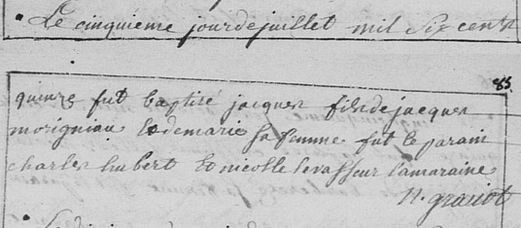 Le cinquieme jour de juillet mil Six cent
85
quinze fut baptisé jacques fils de jacques
morigniau & de marie sa femme fut le parain
charles hubert & nicolle levasseur la maraine
N. graiiot